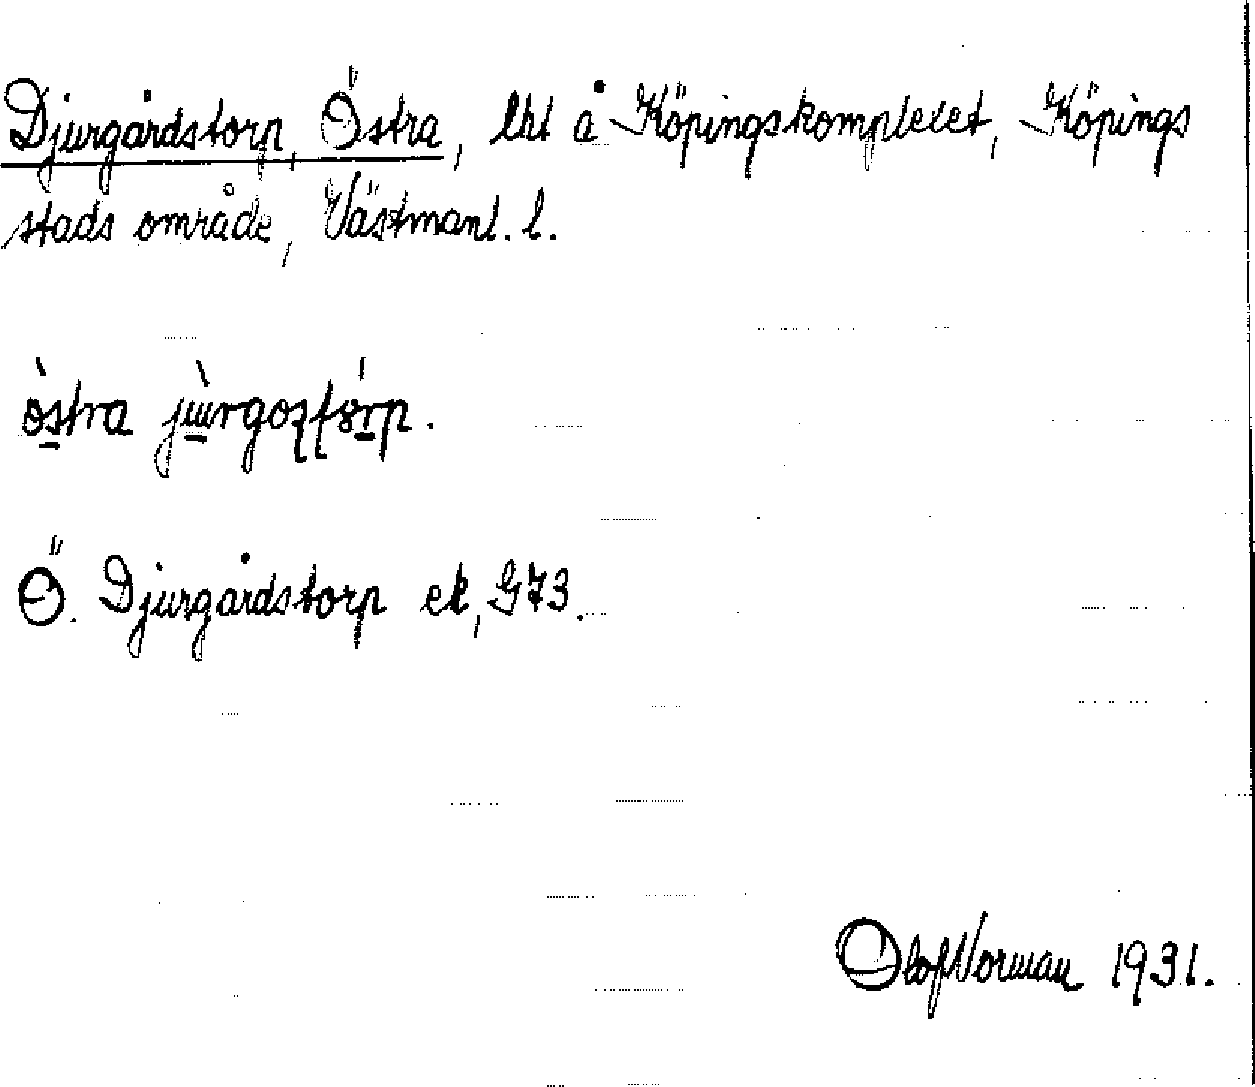 Djurgårdstorp, Östra, lht å Köpingskomplexet, Köpings
stads område, Västmanl. l.
östra
Ö. Djurgårdstorp ek, G73.
Olof Norman 1931.